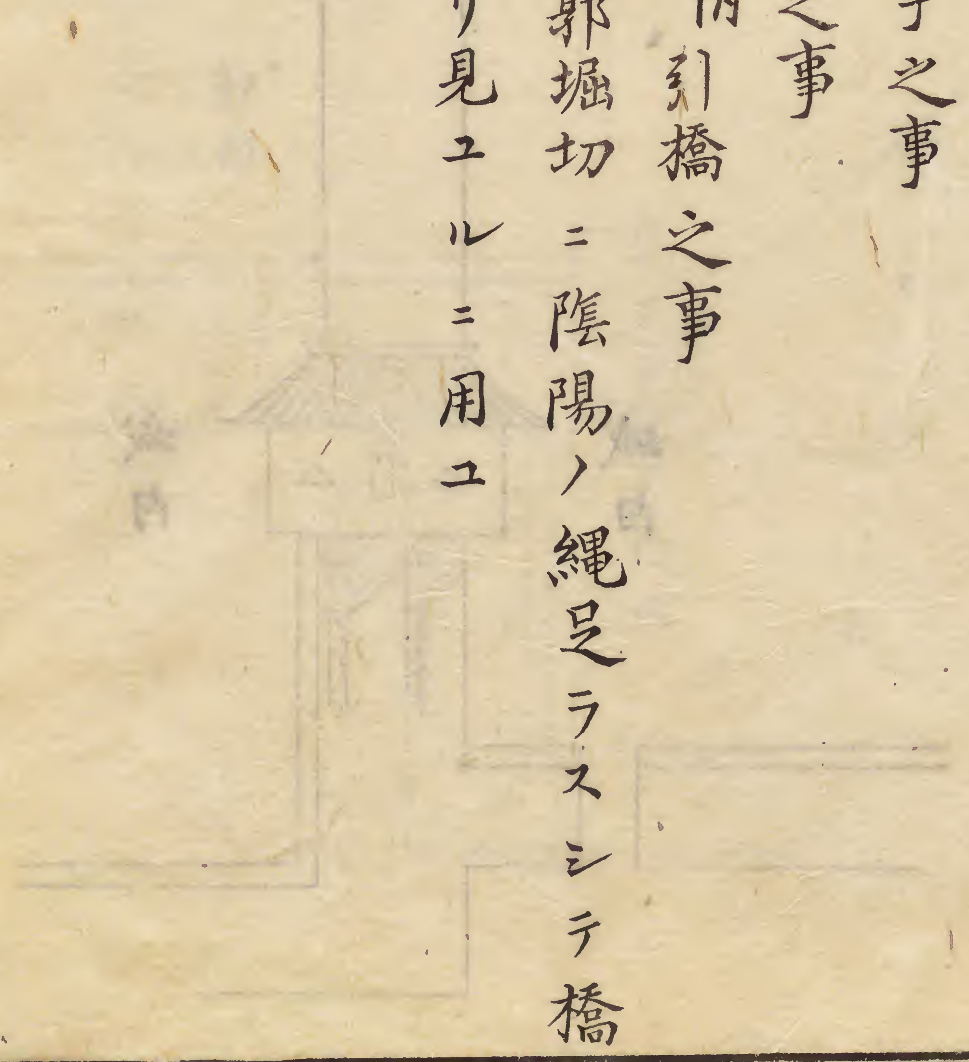 之事
之事
引橋之事
郭堀切ニ陰陽ノ縄足ラスシテ橋
リ見ユルニ用ユ